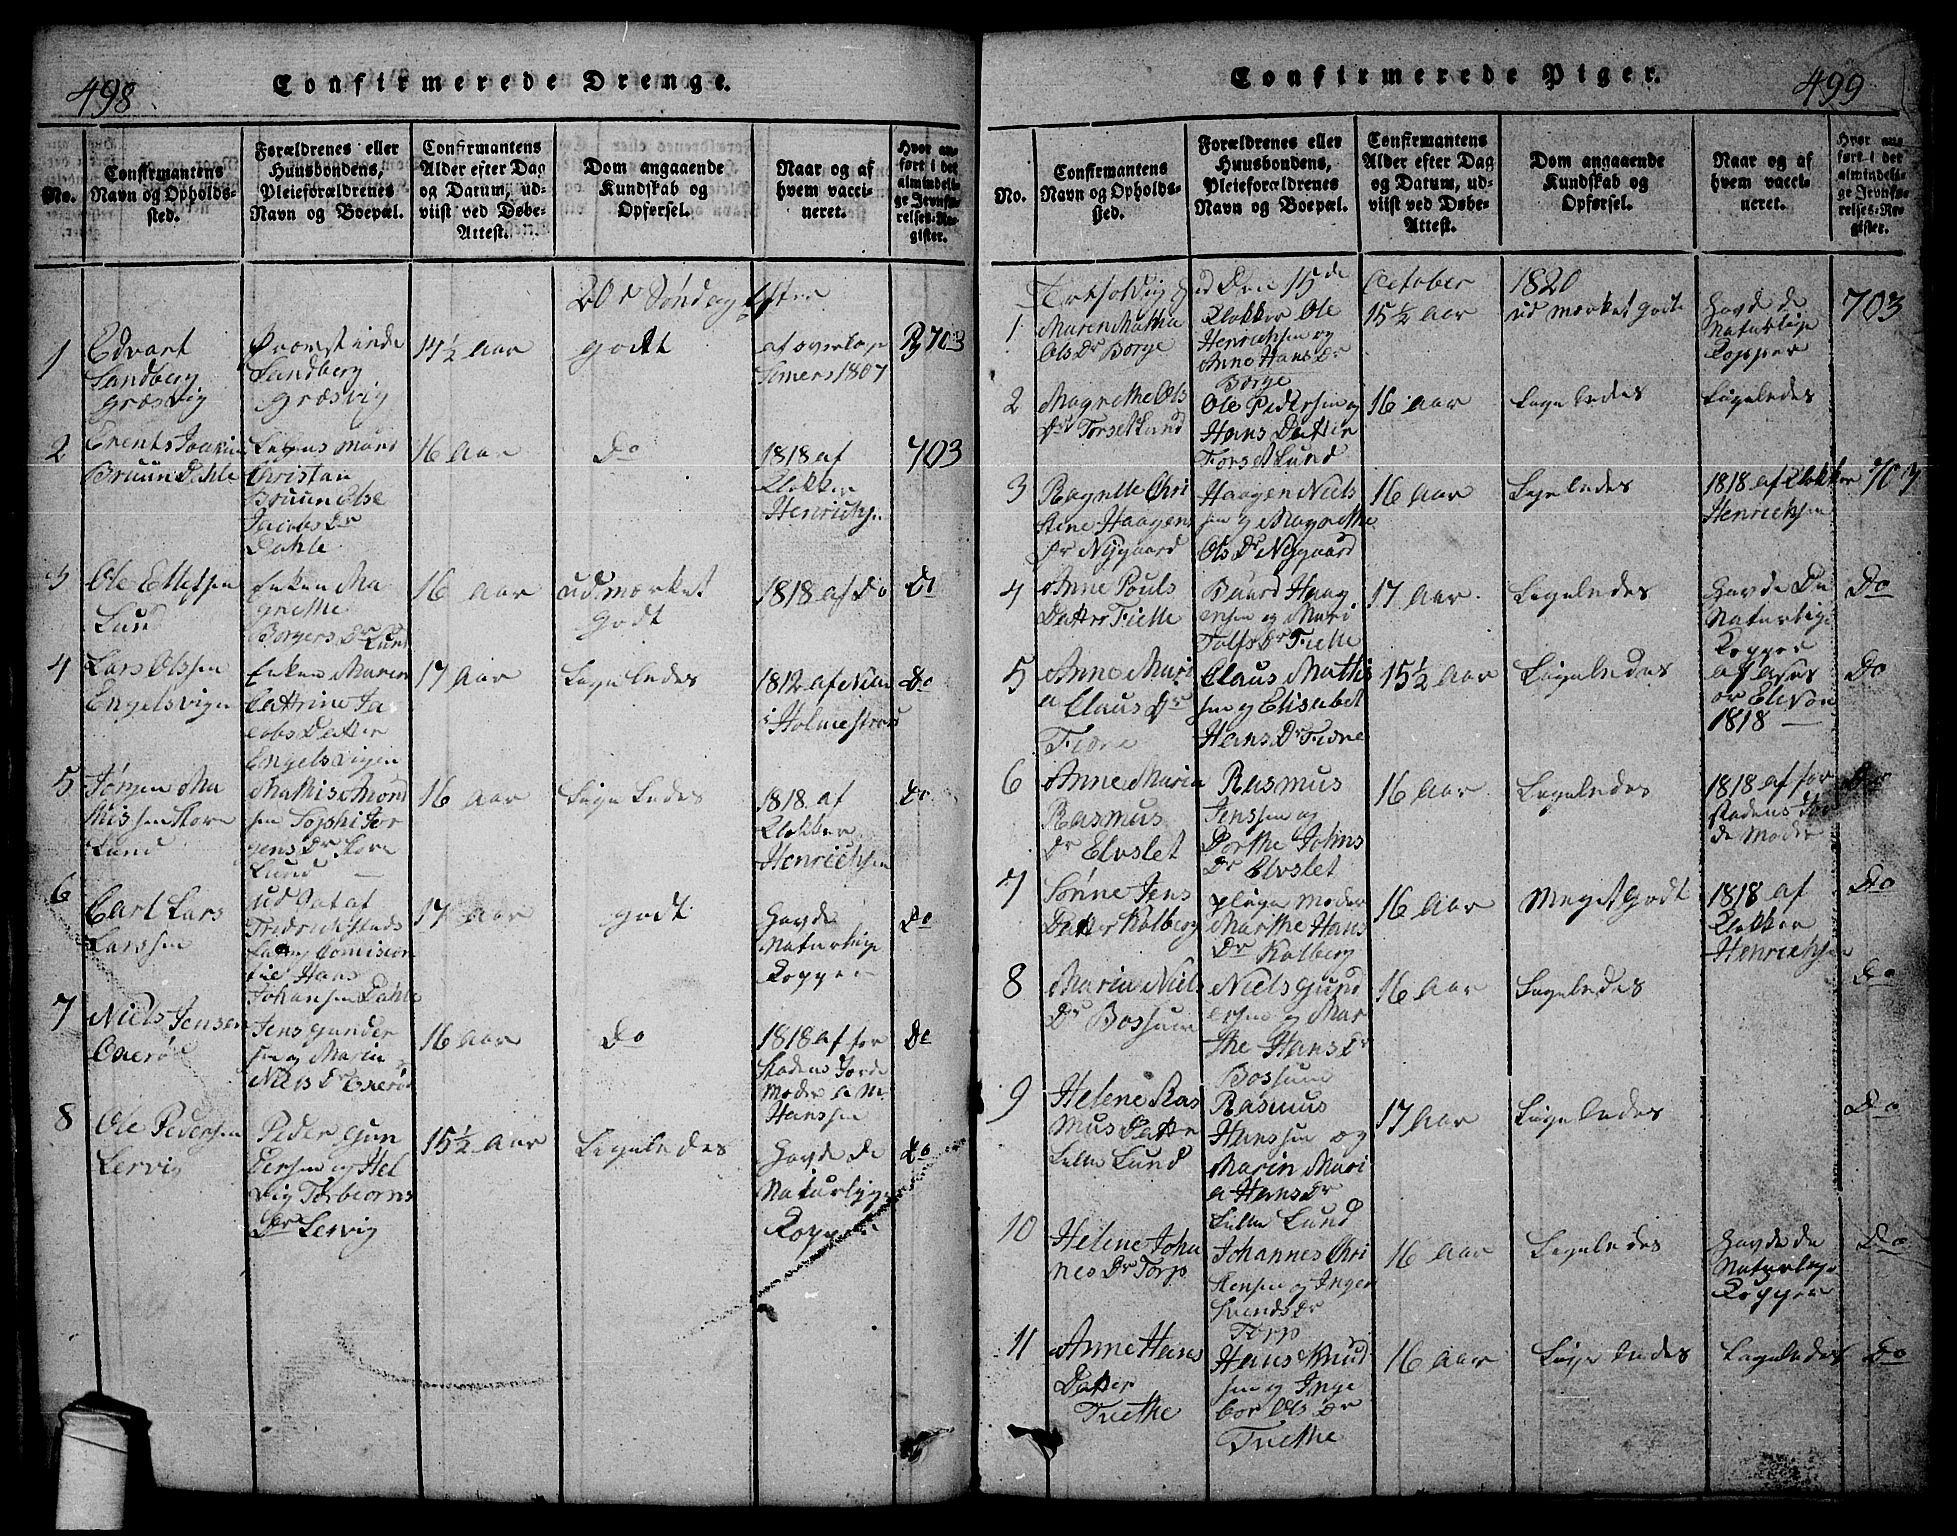 498
Confirmerede Drenge.
No.
Confirmantens
Navn og Opholds-
sted.
Forældrenes eller
Huusbondens,
Pleieforældrenes
Navn og Boepæl.
Confirmantens
Alder efter Dag
og Datum, ud-
viist ved Døbe-
Attest.
Dom angaaende
Kundskab og
Opførsel.
Naar og af
hvem vacci-
neret.
Hvor an-
ført i det
almindeli-
ge Jevnfø-
relses-Re-
gister.
20de Søndag Efter
1
Edvart
Sandberg
Græsvig
Sandberg
Græsvig
14½ Aar
godt
Somers 1807
Pg 703
2
Bruun Dahle
Christian
Bruun Else
Jacobs Dr
Dahle
16 Aar
Do
1818 af
Klokker
Henrichs.
703
3
Ole Ellefsen
Lund
Enken Ma
grethe
Borgers Dr Lund
16 Aar
udmærket
godt
1818 af Do
Do
4
Lars Olssen
Engelsvign
Enken Maren
Cattrine Ja
cobs Datter
Engelsvigen
17 Aar
Ligeledes
1812 af
i Holmestrand
Do
5
Jørgen Ma
thissen Store
Lund
Mathis Amond
sen Sophi Jør
gens Dr Store
Lund
16 Aar
Ligeledes
1818 af
Klokker
Henrichsen
Do
6
Carl Lars
Larssen
ud Sat af
Fredrichstads
Hans
Johansen Dahle
17 Aar
godt
Havde
Naturlige
Kopper
Do
7
Niels Jensen
Onerø
Jens Gunder
sen og Maria
Niels Dr Onerø
16 Aar
Do
1818 af for
stadens Jorde
Moder A M
Hanssen
Do
8
Ole Pedersen
Lervig
Peder Gun
dersen og Hel
vig Torbiorns
Dr Lervig
15½ Aar
Ligeledes
Havde de
Naturlige
Kopper
Do
Confirmerede Piger.
499
No.
Confirmantens
Navn og Opholds-
sted.
Forældrenes eller
Huusbondens,
Pleieforældrenes
Navn og Boepæl.
Confirmantens
Alder efter Dag
og Datum, ud-
viist ved Døbe-
Attest.
Dom angaaende
Kundskab og
Opførsel.
Naar og af
hvem vacci-
neret.
Hvor an-
ført i det
almindeli-
ge Jevnfø-
relses-Re-
gister.
Trefoldighed Den 15de October 1820
1
Maren Mathea
Ols Dr Borge
Klokker Ole
Henrichsen og
Anne Hans Dr
Borge
15½ Aar
udmærket godt
Havde de
Naturlige
Kopper
703
2
Magrethe Ols
Dr Torsetlund
Ole Pedersen og
Hans Datter
Torsetlund
16 Aar
Ligeledes
Ligeledes
3
Ragnelle Chri
stine Haagen
Dr Nygaard
Haagen Niels
sen og Magrethe
Ols Dr Nygaard
16 Aar
Ligeledes
1818 af Klokker
Henrichsen
703
4
Anne Pouls
Datter Tiethe
Baard Haag
ensen og Mari
Tolfs Dr Tiethe
17 Aar.
Ligeledes
Havde De
Naturlige
Kopper
Do
5
Anne Mari
a Claus Dr
Fiære
Claus Mathi
sen og Elisabet
Hans Dr Fiære
15½ Aar
Ligeledes
1818
Do
6
Anne Maria
Rasmus
Dr Elvslet
Rasmus
Jenssen og
Dorthe Johns
Dr Elvslet
16 Aar
Ligeledes
1818 af for
stadens Jor
de Moder
Do
7
Sønne Jens
Datter Kolberg
pleye Moder
Marthe Hans
Dr Kolberg
16 Aar
Meget godt
1818 af
Klokker
Henrichsen
Do
8
Maria Niels
Dr Bossum
Niels Gund
ersen og Mar
the Hans Dr
Bossum
16 Aar
Ligeledes
Do
9
Helene Ras
mus Datter
Lille Lund
Rasmus
Hanssen og
Maren Mari
a Hans Dr
Lille Lund
17 Aar
Ligeledes
Do
10
Helene Joha
nes Dr Torp
Johannes Chri
stensen og Inger
Svends Dr
Torp
16 Aar
Ligeledes
Havde de
Naturlige
Kopper
Do
11
Anne Hans
Datter
Tiethe
Hans Knud
sen og Inge
bor Ols Dr
Tiethe
16 Aar
Ligeledes
Ligeledes
Do